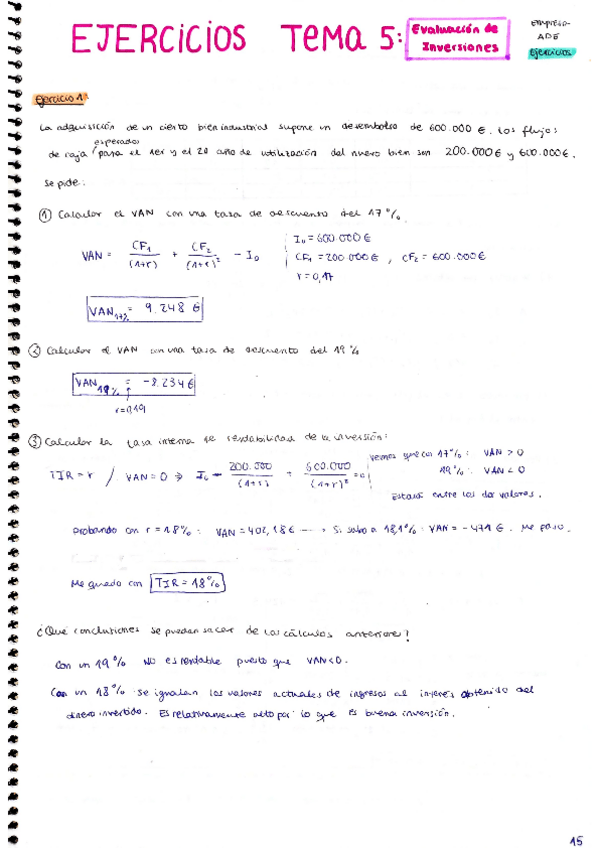 EJERCICIOS TEMA 5: Evaluación de Inversiones
EMPRESA-
ADE
Ejercicios
Ejercicio 1
La adquisición de un cierto bien industrial supone un desembolso de 600.000 €. Los flujos
de caja esperados para el 1er y el 2º año de utilización del nuevo bien son 200.000€ y 600.000€.
Se pide:
① Calcular el VAN con una tasa de descuento del 17%.
VAN = CF₁/(1+r) + CF₂/(1+r)² - I₀
I₀ = 600.000€
CF₁ = 200.000€, CF₂ = 600.000€
r = 0,17
VAN17% = 9.248 €
② Calcular el VAN con una tasa de descuento del 19%
VAN19% = -8.234€
r=0,19
③ Calcular la tasa interna de rentabilidad de la inversión:
TIR = r / VAN=0 ⇒ I₀ - 200.000/(1+r) + 600.000/(1+r)² = 0
Vemos que con 17%: VAN > 0
19%: VAN < 0
Estará entre los dos valores.
Probando con r = 18%: VAN = 402,18€ → Si subo a 18,1%: VAN = -471€. Me paso.
Me quedo con TIR = 18%
¿Qué conclusiones se pueden sacar de los cálculos anteriores?
Con un 19% NO es rentable puesto que VAN<0.
Con un 18% se igualan los valores actuales de ingresos al interés obtenido del
dinero invertido. Es relativamente alto por lo que es buena inversión.
15